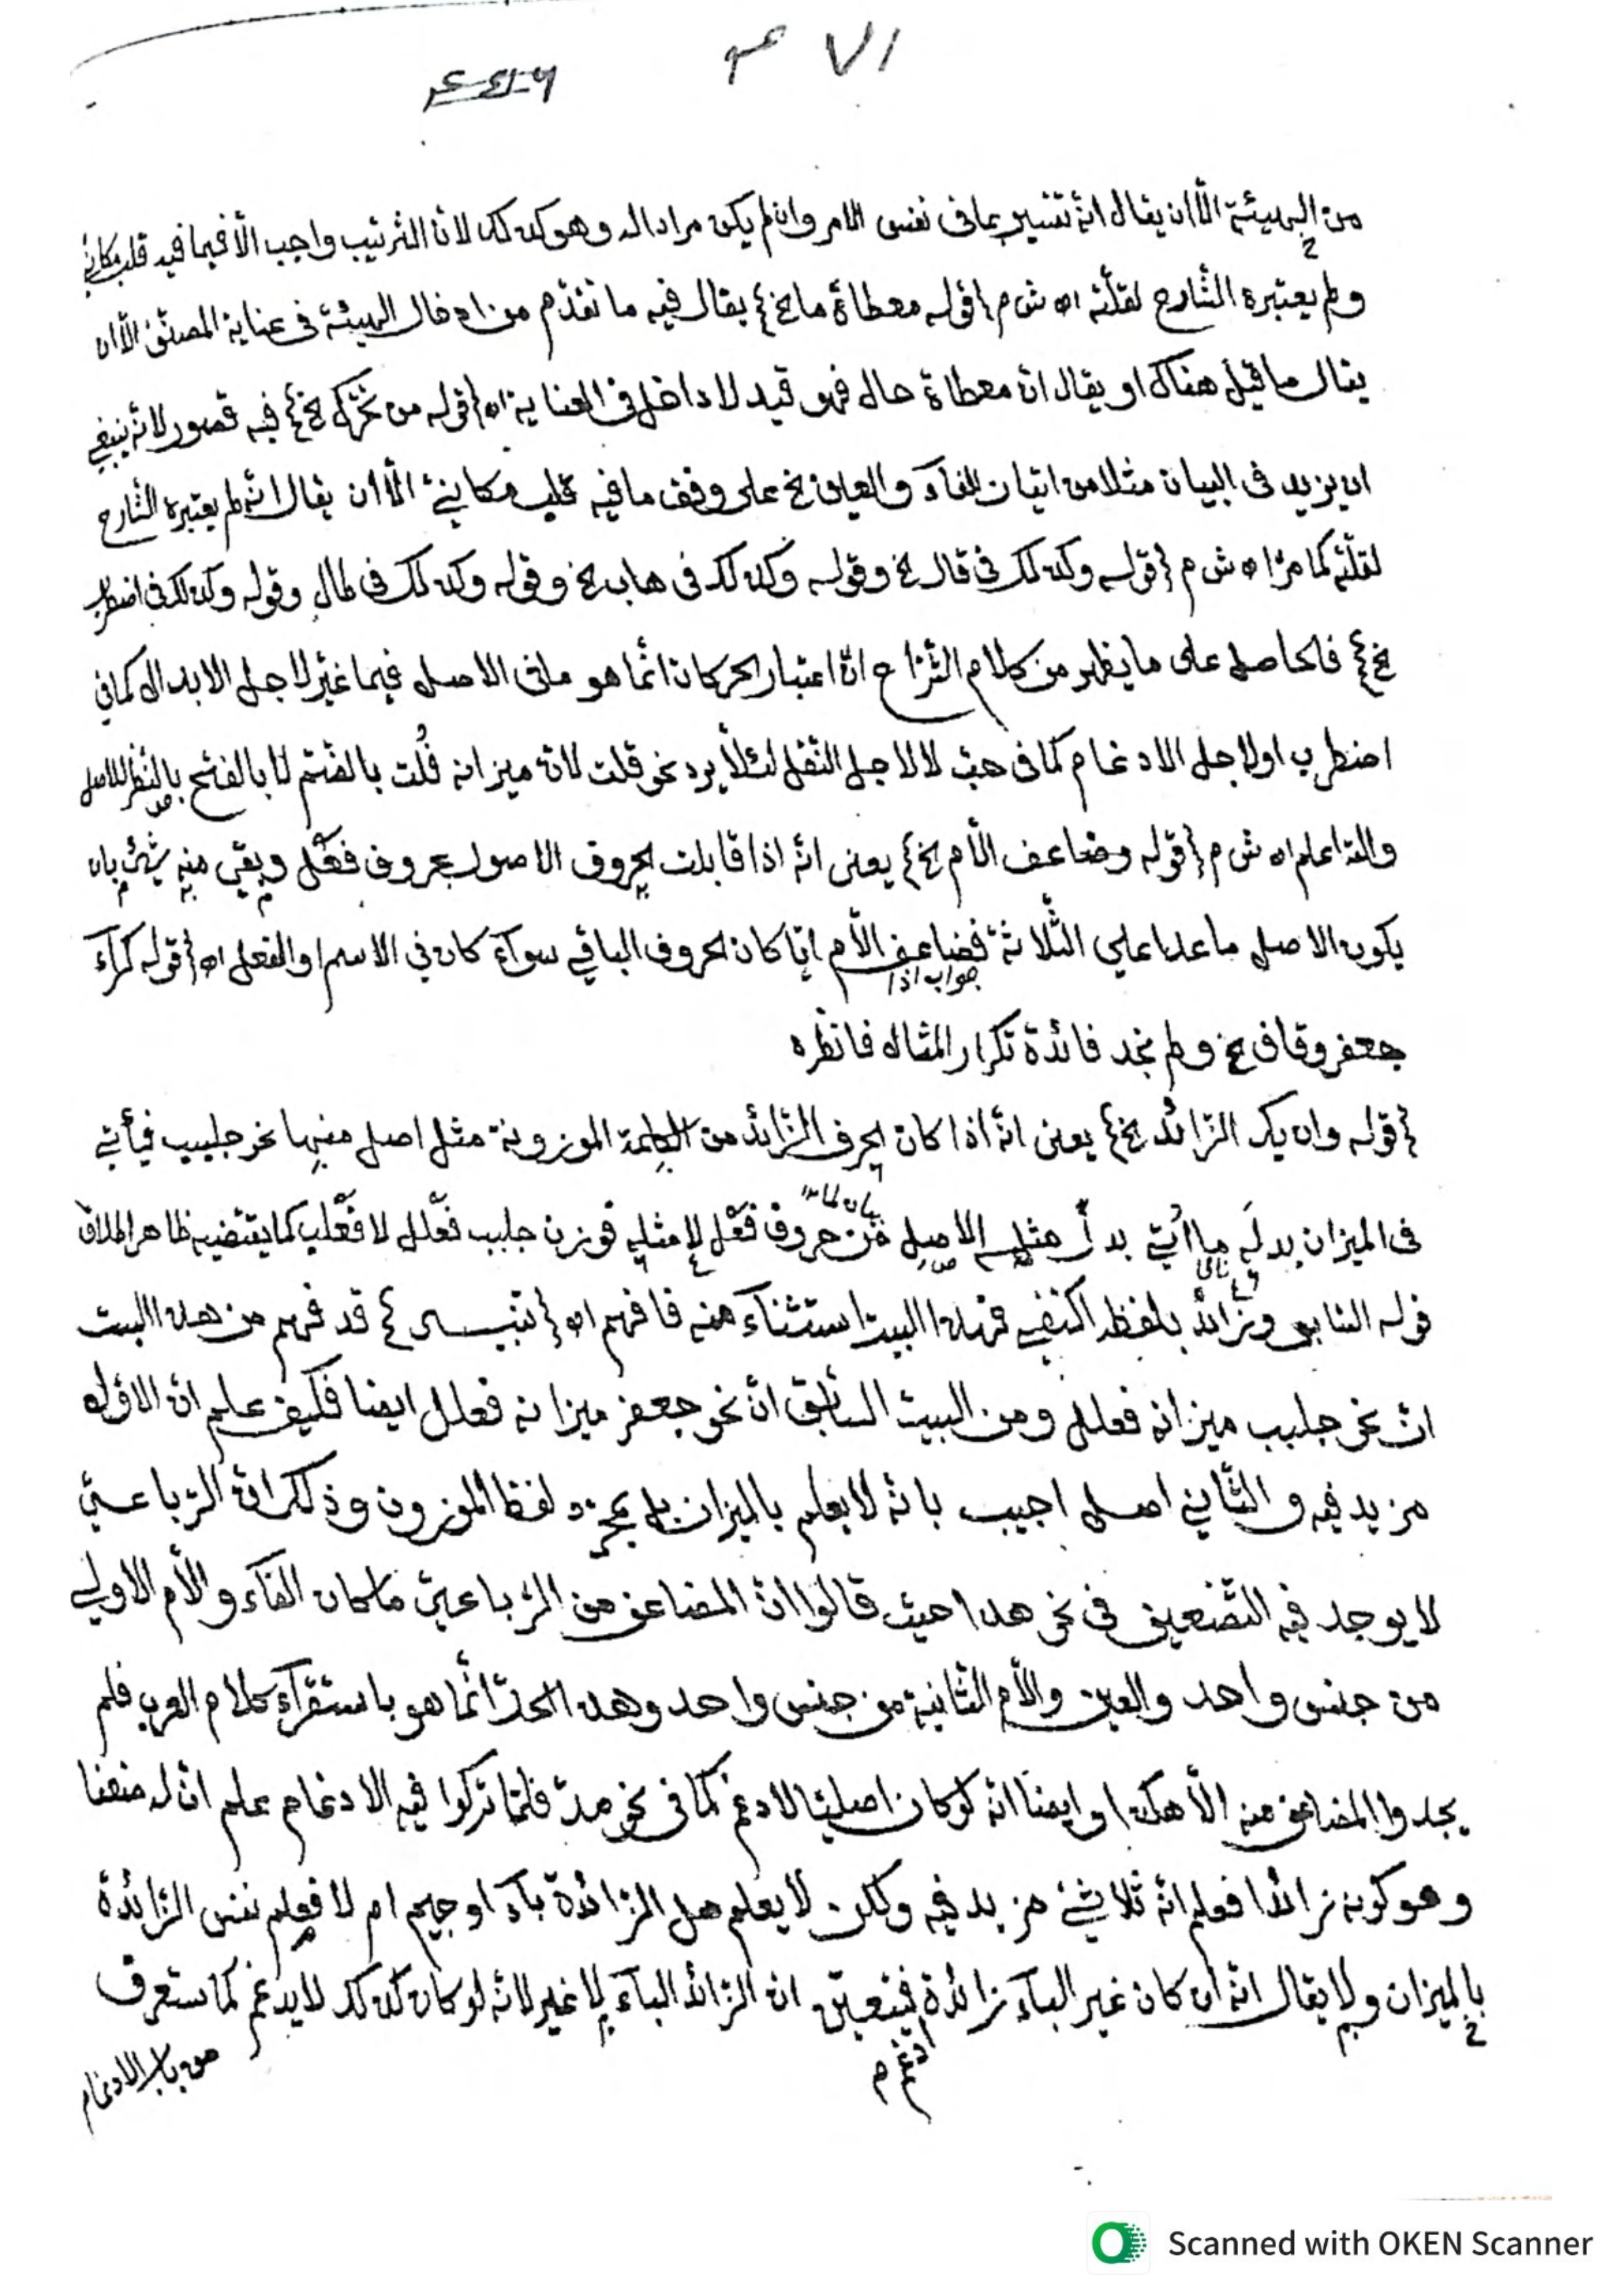 ٧١
من الهيئة الّا ان يقال انّه تفسير بما فى نفس الامر وان لم يكن مرادا له وهو كذلك لانّ الترتيب واجب الّا فيما فيه قلب مكانيّ
ولم يعتبره الشّارح لقلّته اه ش م {قوله معطاة ما الخ} يقال فيه ما تقدّم من ادخال الهيئة فى عناية المصنّف الّا ان
يقال ما قيل هناك او يقال انّ معطاة حال فهو قيد لا داخل فى العناية اه {قوله من تحرّك الخ} فيه قصور لانّه ينبغي
ان يزيد فى البيان مثلا من اتيان الفآء والعين الخ على وفق ما فيه قلب مكانيّ الّا ان يقال انّه لم يعتبره الشّارح
لقلّته كما مرّ اه ش م {قوله وكذلك فى قال الخ وقوله وكذلك فى هاب الخ وقوله وكذلك فى لمال وقوله وكذلك فى اضطرب
الخ} فالحاصل على ما يظهر من كلام الشّراح انّ اعتبار الحركات انّما هو ما فى الاصل فيما غيّر لاجل الابدال كما في
اضطرب او لاجل الادغام كما فى حبّ لا لاجل النّقل لئلّا يرد نحو قلت لانّ ميزانه فُلت بالضّم لا بالفتح بالنّظر للاصل
والله اعلم اه ش م {قوله وضاعف الّام الخ} يعنى انّه اذا قابلت الحروف الاصول بحروف فعل وبقي منه شئ بان
يكون الاصل ما عدا على الثّلاثة فضاعف الّام ايّا كان الحروف الباقي سوآء كان في الاسم او الفعل اه {قوله كرآء
جواب اذا
جعفر وقاف الخ ولم نجد فائدة تكرار المثال فانظره
{قوله وان يك الزّائد الخ} يعنى انّه اذا كان الحرف الزّائد من الكلمة الموزونة مثل اصل منها نحو جلبب فيأتي
فى الميزان بدله ما أُتي بدل مثله الاصل من حروف فعل لا مثله فوزن جلبب فعلل لا فعلب كما يقتضيه ظاهر اطلاق
بيان لما
قوله السّابق وزائد بلفظه اكتفي فهذا البيت استثناء منه فافهم اه {تنبيه} قد فهم من هذا البيت
انّ نحو جلبب ميزانه فعلل ومن البيت السّابق انّ نحو جعفر ميزانه فعلل ايضا فكيف علم انّ الاوّل
مزيد فيه والثّاني اصل اجيب بانّه لا يعلم بالميزان بل بمجرّد لفظ الموزون وذلك انّ الرّباعيّ
لا يوجد فيه التّضعيف فى نحو هذا حيث قالوا انّ المضاعف من الرّباعيّ ما كان الفآء والّام الاولى
من جنس واحد والعين والّام الثّانية من جنس واحد وهذا الحدّ انّما هو باستقرآء كلام العرب فلم
يجدوا المضاعف منه الّا هكذا وايضا انّه لو كان اصليّا لادغم كما فى نحو مدّ فلمّا تركوا فيه الادغام علم انّ له ضعفا
وهو كونه زائدا فعلم انّه ثلاثيّ مزيد فيه ولكن لا يعلم هل الزّائدة بآء او جيم ام لا فيعلم نفس الزّائدة
بالميزان ولا يقال انّه ان كان غير البآء زائدة فيتعيّن انّ الزّائد البآء لا غير لانّه لو كان كذلك لا يدغم كما ستعرف
ادغم م
من باب الادغام
Scanned with OKEN Scanner